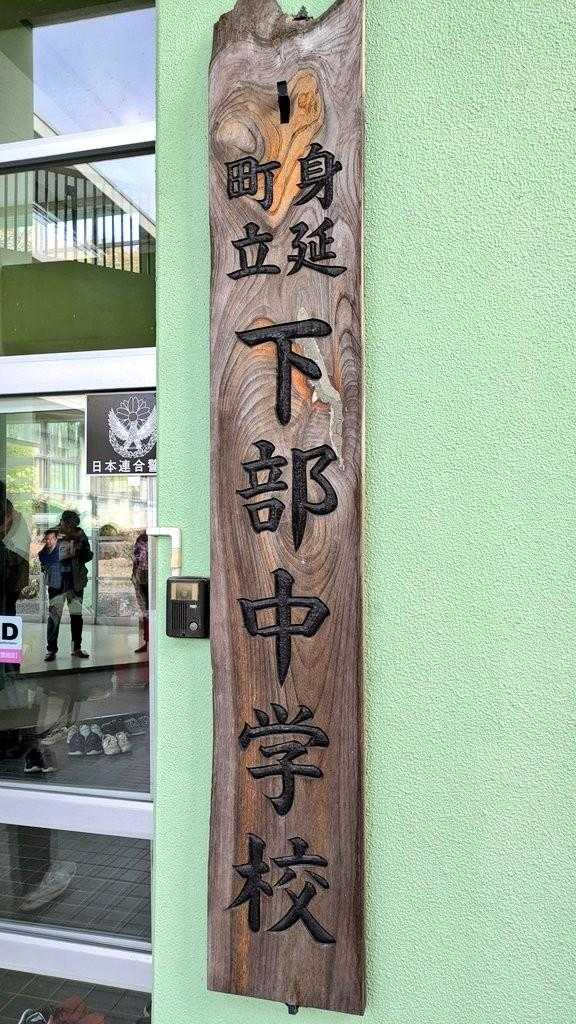 身延
町立
下部中学校
日本連合警
D